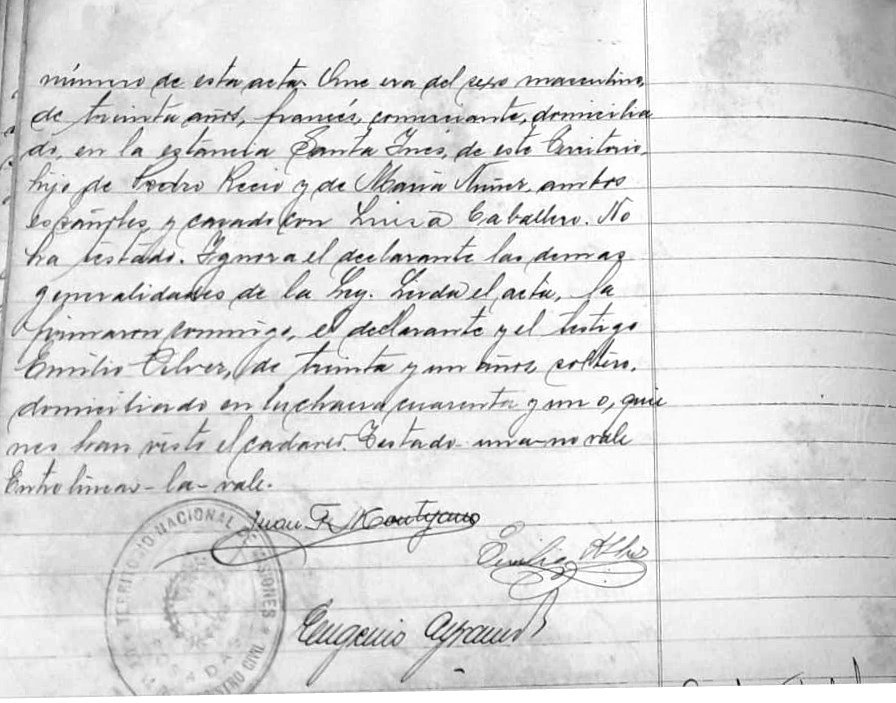 número de esta acta. Que era del sexo masculino,
de treinta años, francés, comerciante, domicilia
do, en la estancia Santa Inés, de este Territorio,
hijo de Pedro Recio y de María Núñez, ambos
españoles, y casado con Luisa Caballero. No
ha testado. Ignora el declarante las demas
generalidades de la Ley. Leida el acta, la
firmaron conmigo, el declarante y el testigo
Emilio de treinta y un años, soltero,
domiciliado en la chacra cuarenta y uno, quie
nes han visto el cadaver. Testado-una-no vale
Entre lineas-la-vale.
Juan F.
Emilio
Eugenio
TERRITORIO NACIONAL DE MISIONES
POSADAS
REGISTRO CIVIL